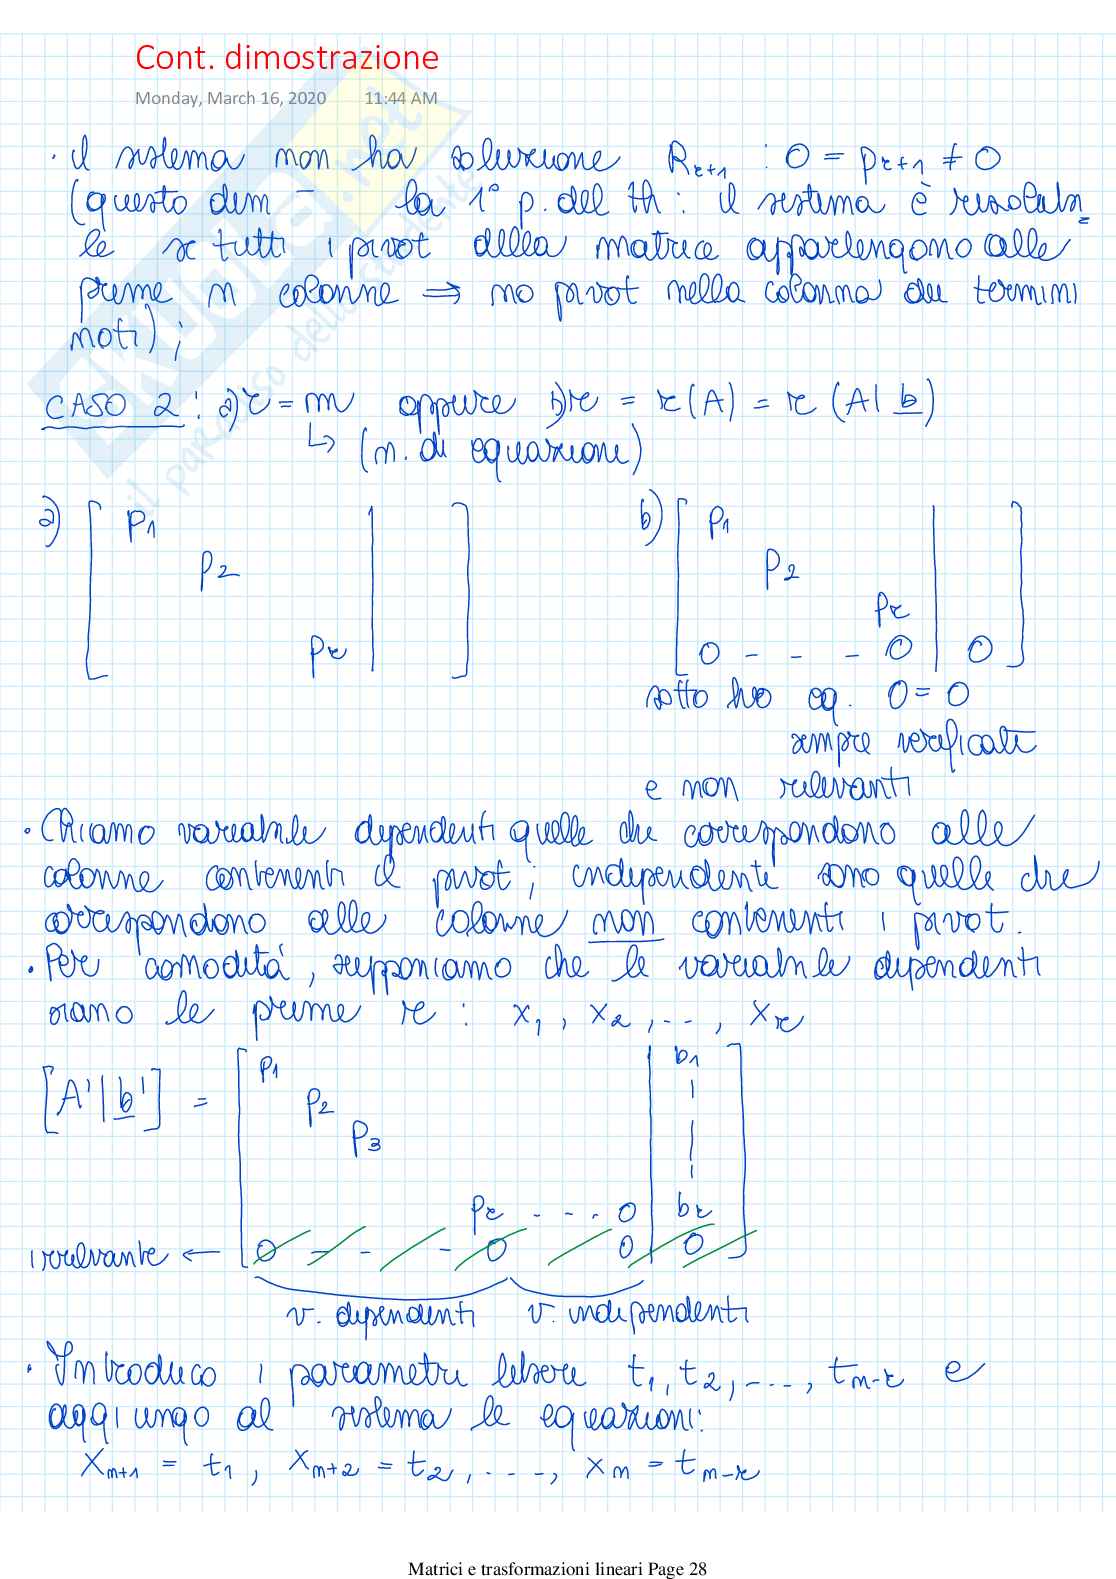 Cont. dimostrazione
Monday, March 16, 2020 11:44 AM
· il sistema non ha soluzione R_{r+1} : 0 = p_{r+1} ≠ 0
(questo dim la 1° p. del th : il sistema è risolubi=
le se tutti i pivot della matrice appartengono alle
prime n colonne ⇒ no pivot nella colonna dei termini
noti) ;
CASO 2 : a) r = m oppure b) r = r(A) = r(A|b)
↳ (n. di equazione)
a) [ p1 | ] b) [ p1 | ]
p2 p2
pr
pr 0 - - - 0 | 0
sotto ho eq. 0 = 0
sempre verificate
e non rilevanti
· Chiamo variabile dipendenti quelle che corrispondono alle
colonne contenenti il pivot ; indipendente sono quelle che
corrispondono alle colonne non contenenti i pivot.
· Per comodità, supponiamo che le variabile dipendenti
siano le prime r : x1, x2, ..., xr
[A'|b'] = [ p1 | b1 ]
p2
p3
pr - - . 0 | br
irrilevante ← 0 - - - 0 0 | 0
v. dipendenti v. indipendenti
· Introduco i parametri liberi t1, t2, ..., t_{n-r} e
aggiungo al sistema le equazioni:
x_{n+1} = t1, x_{n+2} = t2, ..., xn = t_{n-r}
Matrici e trasformazioni lineari Page 28